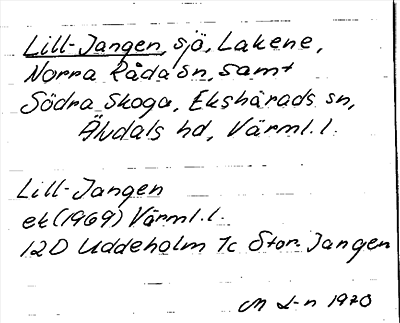 Lill-Jangen, sjö, Lakene,
Norra Råda sn, samt
Södra Skoga, Ekshärads sn,
Älvdals hd, Värml. l.
Lill-Jangen
ek (1969) Värml. l.
12D Uddeholm 7c Stor-Jangen
M L-n 1970